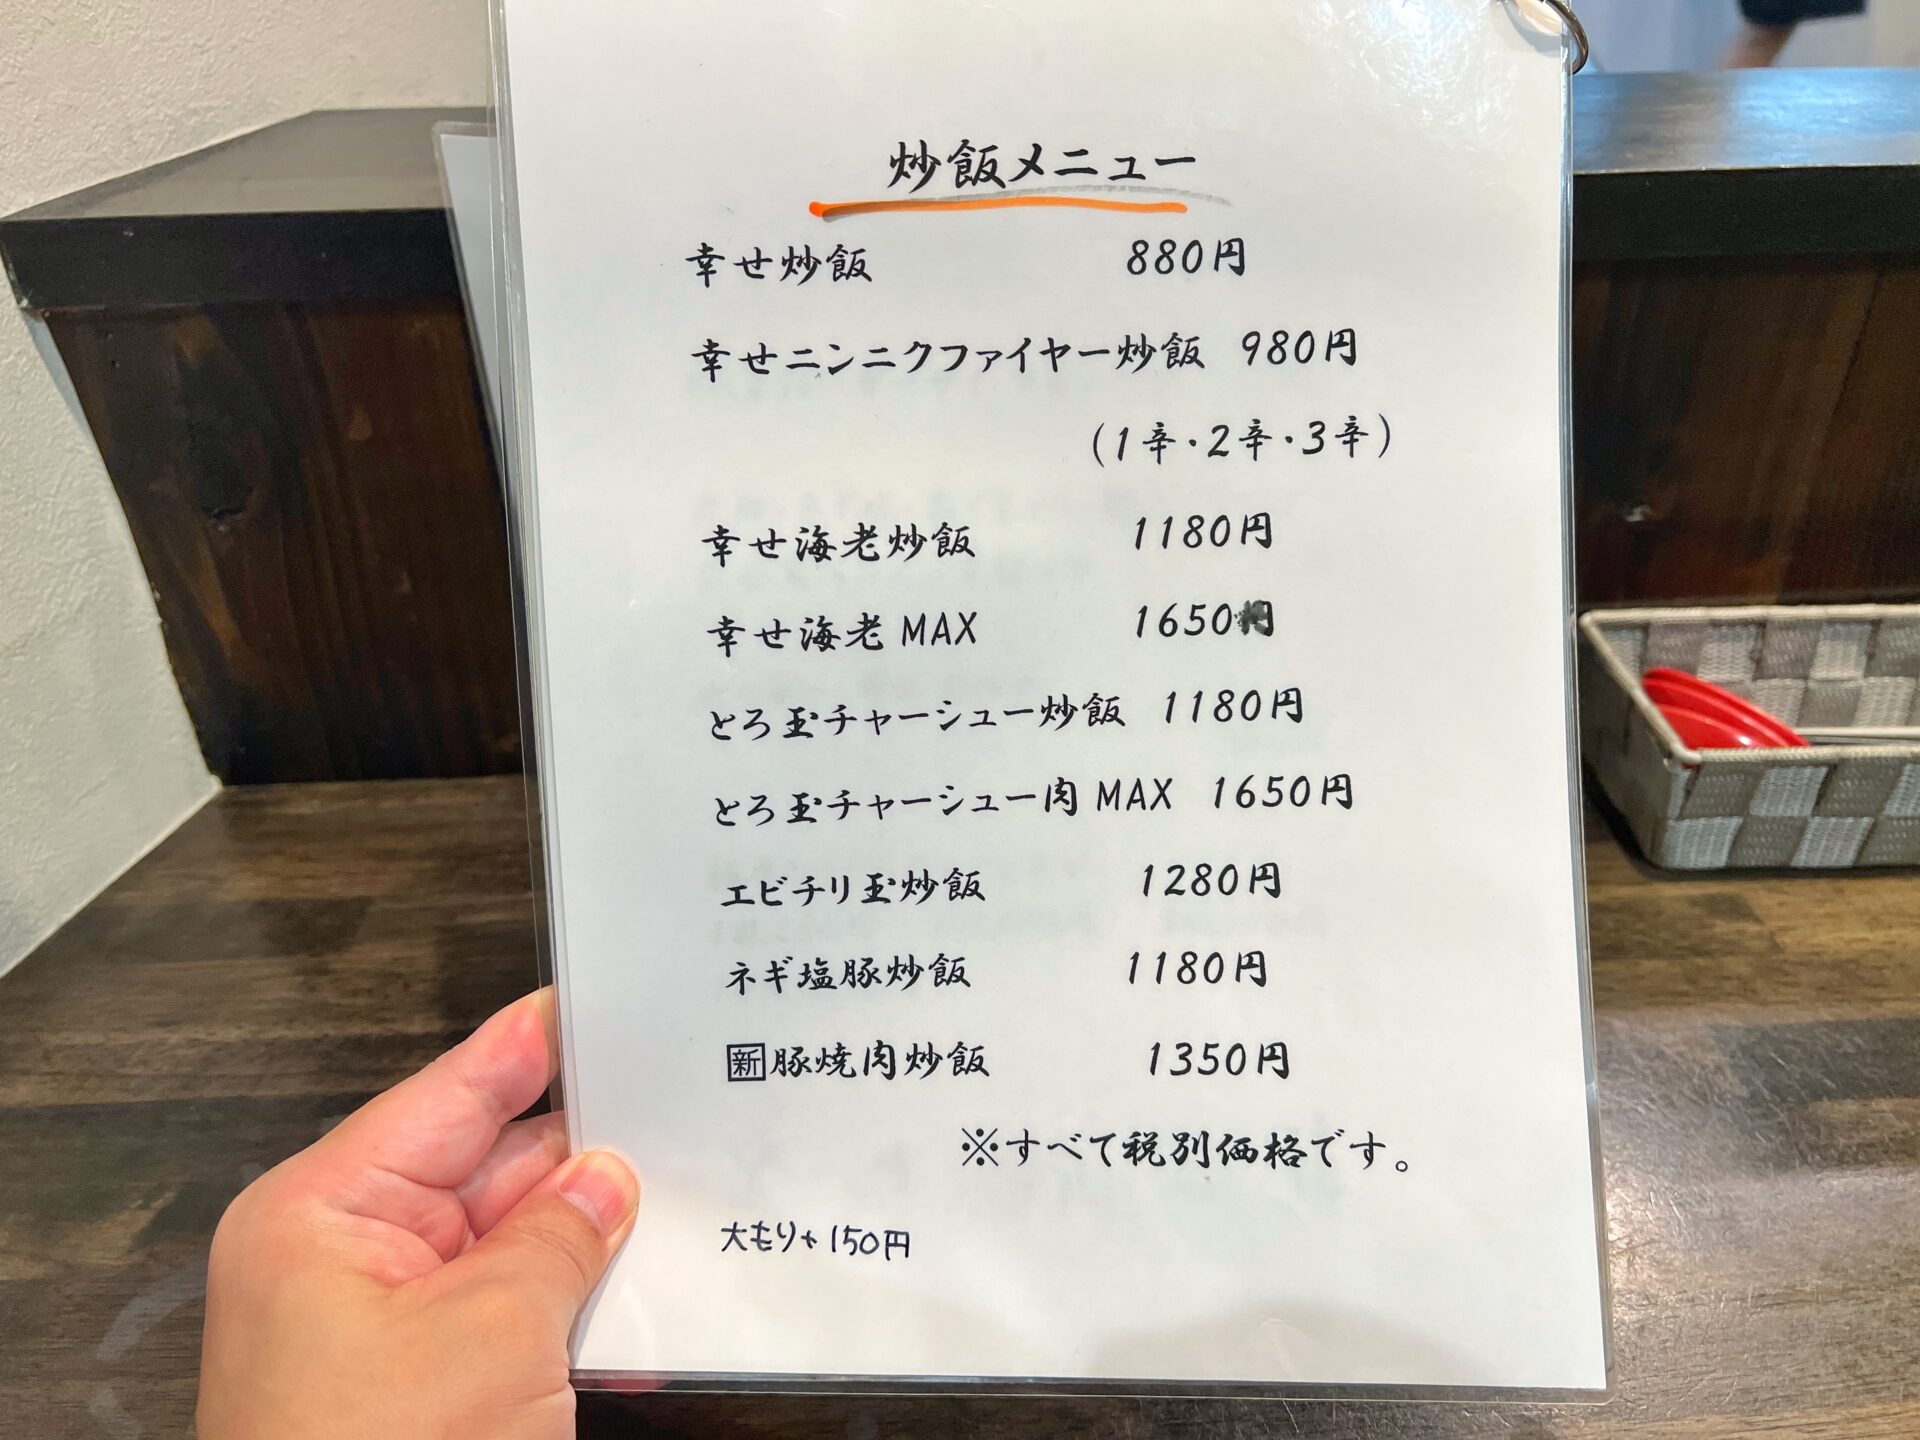 炒飯メニュー
幸せ炒飯 880円
幸せニンニクファイヤー炒飯 980円
(1辛・2辛・3辛)
幸せ海老炒飯 1180円
幸せ海老MAX 1650円
とろ玉チャーシュー炒飯 1180円
とろ玉チャーシュー肉MAX 1650円
エビチリ玉炒飯 1280円
ネギ塩豚炒飯 1180円
新豚焼肉炒飯 1350円
※すべて税別価格です。
大もり+150円